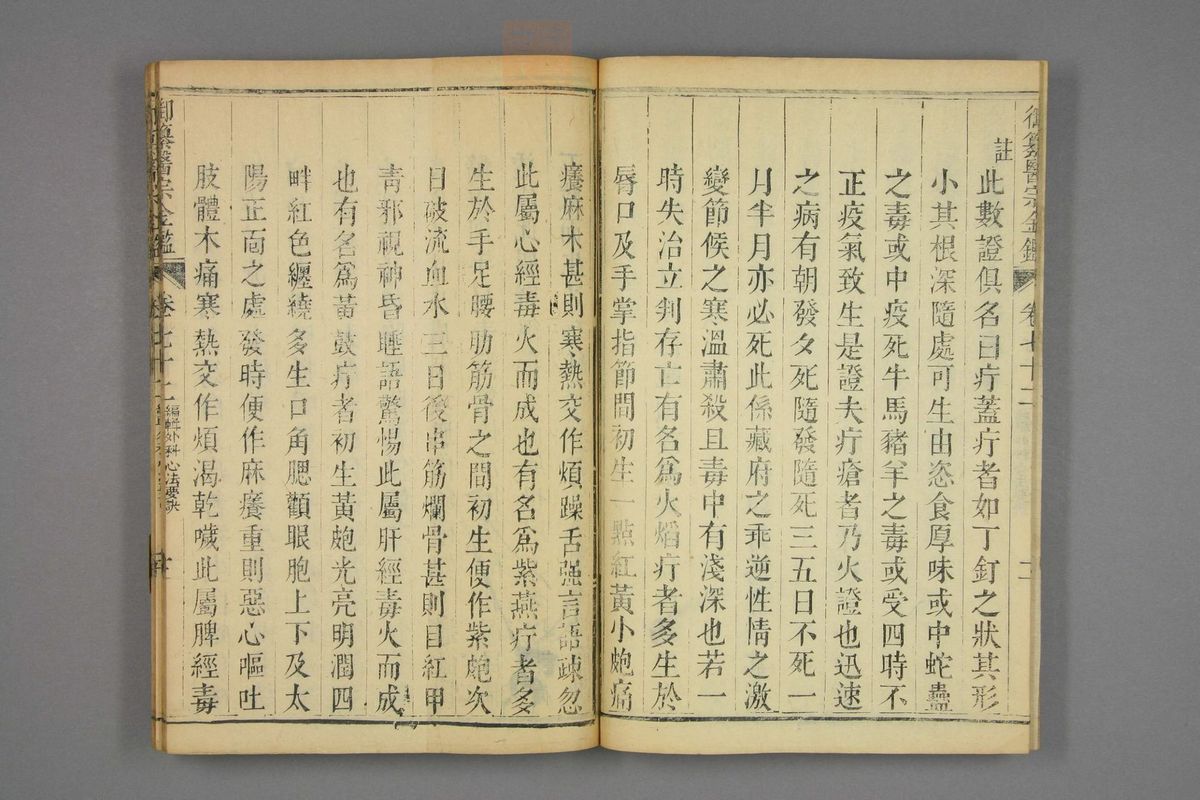 御纂醫宗金鑑 卷七十二
註
此數證俱名曰疔蓋疔者如丁釘之狀其形
小其根深隨處可生由恣食厚味或中蛇蠱
之毒或中疫死牛馬豬羊之毒或受四時不
正疫氣致生是證夫疔瘡者乃火證也迅速
之病有朝發夕死隨發隨死三五日不死一
月半月亦必死此係藏府之乖逆性情之激
變節候之寒溫肅殺且毒中有淺深也若一
時失治立判存亡有名為火焰疔者多生於
脣口及手掌指節間初生一點紅黃小皰痛
癢麻木甚則寒熱交作煩躁舌强言語疎忽
此屬心經毒火而成也有名為紫燕疔者多
生於手足腰肋筋骨之間初生便作紫皰次
日破流血水三日後串筋爛骨甚則目紅甲
靑邪視神昏睡語驚惕此屬肝經毒火而成
也有名為黃鼓疔者初生黃皰光亮明潤四
畔紅色纏繞多生口角腮顴眼胞上下及太
陽正面之處發時便作麻癢重則惡心嘔吐
肢體木痛寒熱交作煩渴乾噦此屬脾經毒
御纂醫宗金鑑 卷七十二 編輯外科心法要訣